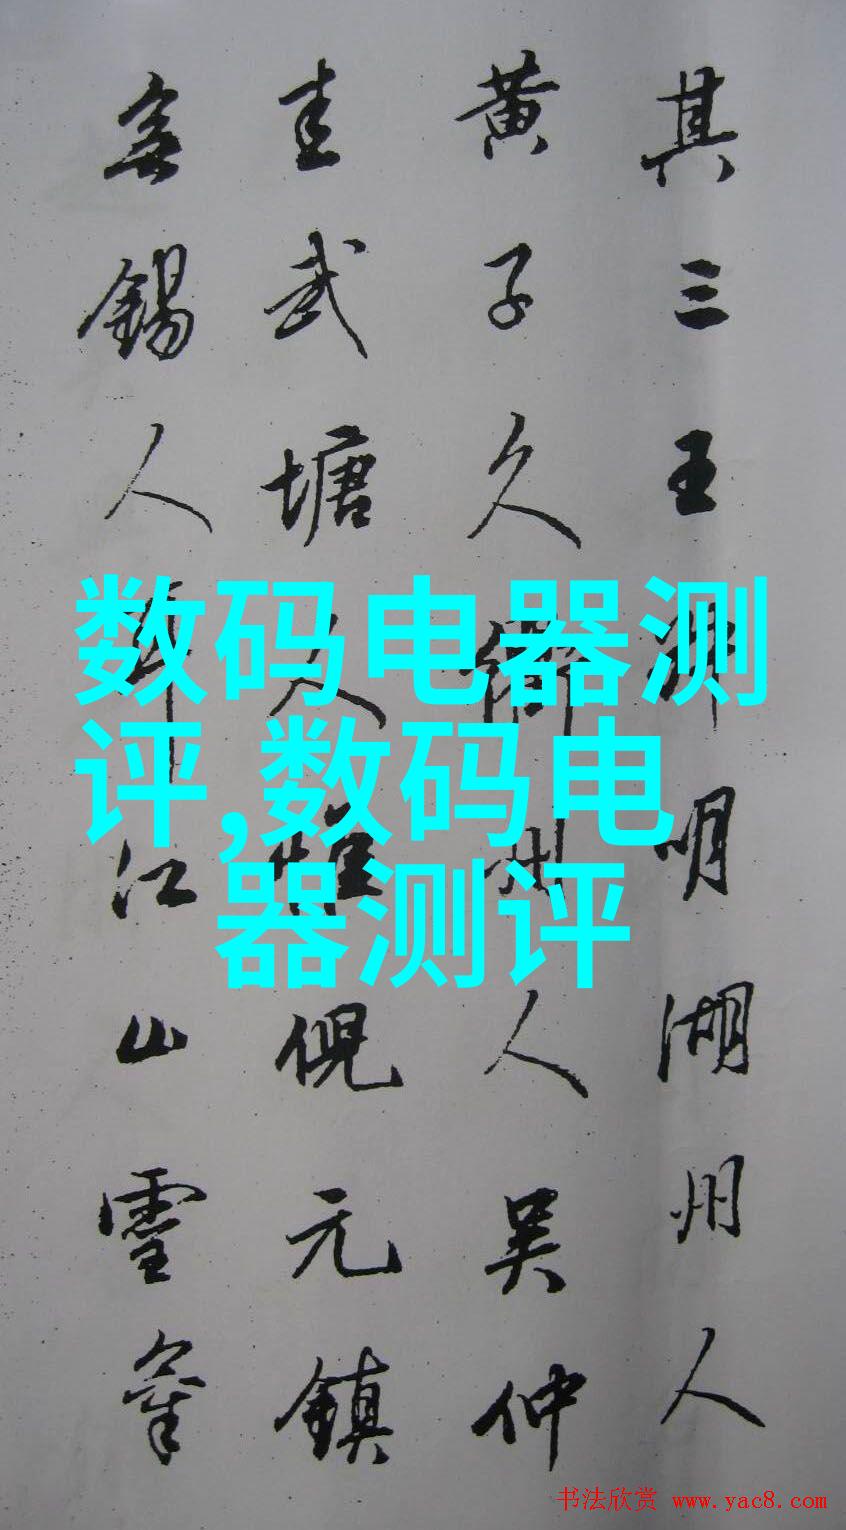 其三王明湖州人
黄子久州人吴仲
圭武塘人惟倪元鎮
無錫人江山雪
数码电器测
评,数码电
器测评
书法欣赏 www.yac8.com